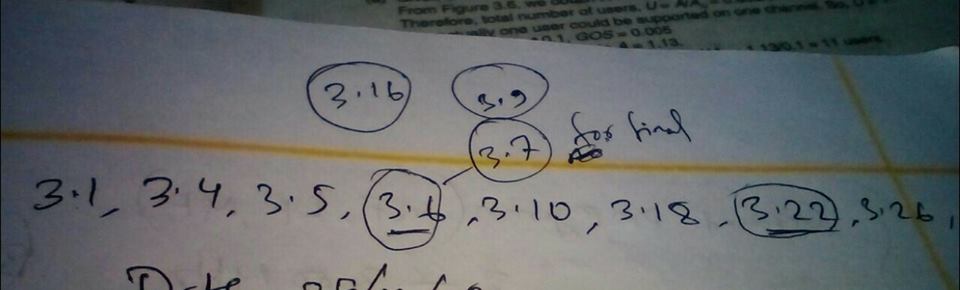 From Figure 3.6, we
Therefore, total number of users, U =
one user could be supported on one channel. So,
0.1, GOS = 0.005
A = 1.13. 1.13/0.1 = 11 users
3.16 3.9
3.7 for final
3.1, 3.4, 3.5, 3.6, 3.10, 3.18, 3.22, 3.26,